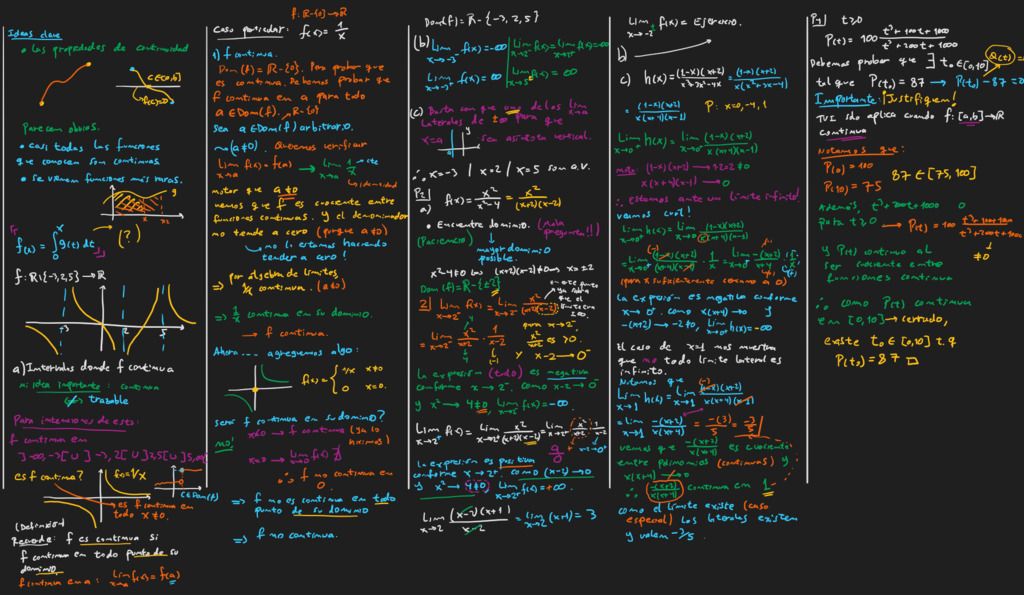 Ideas clave
• Las propiedades de continuidad
c∈(a,b]
f(c)=0
Parecen obvios.
• casi todas las funciones
que conocen son continuas
• se vienen funciones más raras.
g
x
f(x) = ∫₀ˣ g(t) dt → (?)
f: R\{-3,2,5} → R
-3
2
5
a) Intervalos donde f continua
mi idea importante: continua
trazable
Para intenciones de esto:
f continua en
]-∞,-3[ ∪ ]-3,2[ ∪ ]2,5[ ∪ ]5,∞[
es f continua?
f(x)=1/x
→ es f continua en
todo x≠0.
(Definición)
Recorde: f es continua si
f continua en todo punto de su
dominio
f continua en a: Lim x→a f(x) = f(a)
f: R-{0} → R
Caso particular: f(x) = 1/x
1) f continua.
Dom(f) = R-{0}. Para probar que
es continua. Debemos probar que
f continua en a para todo
a ∈ Dom(f). R-{0}
Sea a ∈ Dom(f) arbitrario.
(a≠0). Queremos verificar
Lim x→a f(x) = f(a) → Lim x→a 1/x → cte
→ identidad
notar que a≠0
vemos que f es cuociente entre
funciones continuas. y el denominador
no tende a cero (porque a≠0)
→ no lo estamos haciendo
tender a cero!
⇒ por álgebra de límites
1/x continua. (a≠0)
⇒ 1/x continua en su dominio.
→ f continua.
Ahora ... agreguemos algo:
f(x) = { 1/x x≠0
0 x=0.
será f continua en su dominio?
no!
x≠0 → f continua (ya lo
hicimos)
x=0 → Lim x→0 f(x) ∄
∴ f no continua en
0
⇒ f no es continua en todo
punto de su dominio
⇒ f no continua.
Dom(f) = R-{-3,2,5}
(b) Lim x→-3⁻ f(x) = -∞
Lim x→-3⁺ f(x) = ∞
Lim x→2⁻ f(x) = Lim x→2⁺ f(x) = -∞
Lim x→5 f(x) = ∞
(c) Basta con que uno de los Lim x→a
laterales de ±∞ para que
x=a
y
x
sea asíntota vertical.
∴ x=-3 / x=2 / x=5 son a.v.
P2
a) f(x) = x²/(x²-4) = x²/((x+2)(x-2))
• Encuentre dominio. (Mala
pregunta!!)
(Paciencia)
mayor dominio
posible.
x²-4≠0 (x+2)(x-2)≠0 x=±2
Dom(f) = R-{±2}
2) Lim x→2⁻ f(x) = Lim x→2⁻ x²/((x+2)(x-2))
= Lim x→2⁻ x²/(x+2) · 1/(x-2)
para x→2⁻
x²/(x+2) es >0.
y x-2 → 0⁻
La expresión (todo) es negativa
conforme x→2⁻. como x-2→0⁻
y x²→4≠0, Lim x→2⁻ f(x) = -∞.
Lim x→2⁺ f(x) = Lim x→2⁺ x²/((x+2)(x-2)) = Lim x→2⁺ x²/(x+2) · 1/(x-2)
x-2→0⁺
La expresión es positiva
conforme x→2⁺. como (x-2)→0
y x²→4≠0, Lim x→2⁺ f(x) = +∞.
Lim x→2 (x-2)(x+1)/(x-2) = Lim x→2 (x+1) = 3
Lim x→-2± f(x) = Ejercicio.
b)
c) h(x) = (1-x)(x+2)/(x³+3x²-4x) = (1-x)(x+2)/(x(x²+3x-4))
= (1-x)(x+2)/(x(x+4)(x-1)) P: x=0,-4,1
Lim x→0⁺ h(x) = Lim x→0⁺ (1-x)(x+2)/(x(x+4)(x-1))
nota: (1-x)(x+2) → 2≠0
x(x+4)(x-1) → 0
∴ estamos ante un límite infinito.
veamos cuál!
Lim x→0⁺ h(x) = Lim x→0⁺ (1-x)(x+2)/(x(x+4)(x-1))
(para x suficientemente cercano a 0)
La expresión es negativa conforme
x→0⁺. como x(x+4)→0 y
-(x+2)→-2≠0, Lim x→0⁺ h(x) = -∞
El caso de x=1 nos muestra
que no todo límite lateral es
infinito.
Notamos que
Lim x→1 h(x) = Lim x→1 (1-x)(x+2)/(x(x+4)(x-1))
= Lim x→1 -(x+2)/(x(x+4)) = -(3)/5 = -3/5
vemos que -(x+2)/(x(x+4)) es cuociente
entre polinomios (continuas) y
x(x+4) ↛ 0
∴ -(x+2)/(x(x+4)) continua en 1
como el límite existe (caso
especial) los laterales existen
y valen -3/5.
P4 t≥0
P(t) = 100 (t²+100t+1000)/(t²+200t+1000)
Debemos probar que ∃ t₀ ∈ [0,10]
Q(t)
tal que P(t₀) = 87 → P(t₀)-87=0
Importante: ¡Justifiquen!
TVI solo aplica cuando f: [a,b]→R
continua
Notamos que:
P(0) = 100
P(10) = 75
87 ∈ [75,100]
Además, t²+200t+1000 ≠ 0
para t≥0 → P(t) = 100 (t²+100t+1000)/(t²+200t+1000)
≠0
y P(t) continua al
ser cuociente entre
funciones continuas
∴ como P(t) continua
en [0,10] → cerrado,
existe t₀ ∈ [0,10] t.q
P(t₀) = 87 □